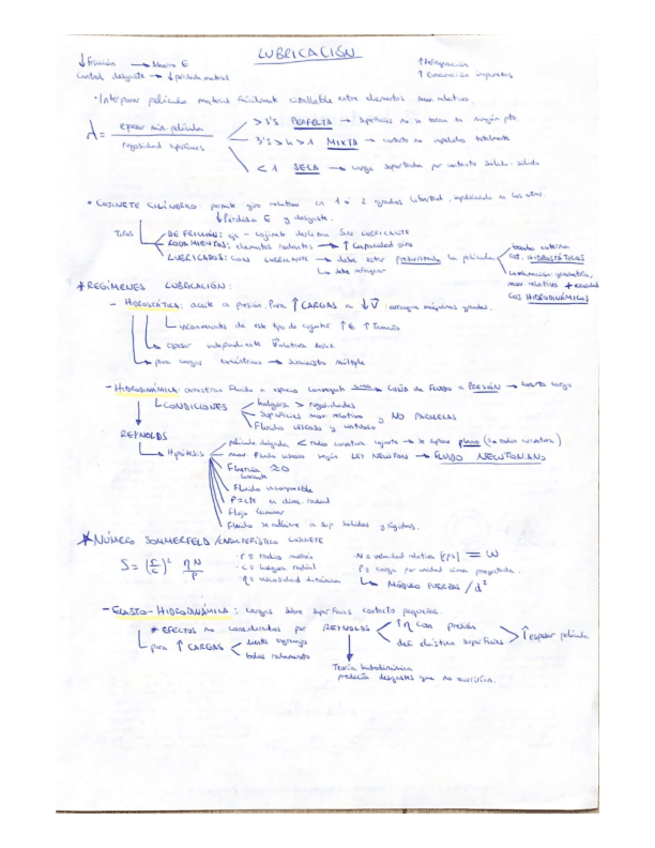 LUBRICACIÓN
↓ Fricción → Ahorro E
↑ Refrigeración
Control desgaste → ↓ pérdida material
↑ Evacuación impurezas
· Interponer película material fácilmente cizallable entre elementos mov. relativo.
λ = espesor mín. película / rugosidad superficies
> 3'5 PERFECTA → superficies no se tocan en ningún pto.
3'5 > h > 1 MIXTA → contacto no impedido totalmente
< 1 SECA → carga soportada por contacto sólido-sólido
* COJINETE CILÍNDRICO: permite giro relativo en 1 o 2 grados libertad, impidiendo en los otros.
↓ Pérdida E y desgaste.
Tipos
DE FRICCIÓN: eje - cojinete desliza SIN LUBRICANTE
RODAMIENTOS: elementos rodantes → ↑ Capacidad giro
LUBRICADOS: CON LUBRICANTE → debe estar presurizada la película
↳ debe refrigerar
bomba externa
COJ. HIDROSTÁTICOS
combinación geometría,
mov relativo +
COJ HIDRODINÁMICOS
* REGÍMENES LUBRICACIÓN:
- HIDROSTÁTICA: aceite a presión. Para ↑ CARGAS a ↓ V: arranque máquinas grandes.
↳ inconveniente de este tipo de cojinetes ↑ € ↑ Tamaño
↳ espesor independiente Vrelativa
↳ para cargas excéntricas → suministro múltiple
- HIDRODINÁMICA: arrastran fluido a espacio convergente → CUÑA DE FLUIDO A PRESIÓN → soporta carga
↳ CONDICIONES
holgura > rugosidades
Superficies mov. relativo y NO PARALELAS
Fluido viscoso y untuoso
REYNOLDS
↳ Hipótesis
película delgada < radio curvatura cojinete → se supone plano (no radio curvatura)
mov. Fluido viscoso según LEY NEWTON → FLUIDO NEWTONIANO
Finercia ≈ 0
Fluido incompresible
P = cte en direc. radial
Flujo laminar
Fluido se adhiere a sup. sólidas y rígidas.
* NÚMERO SOMMERFELD / CARACTERÍSTICO COJINETE
S = (r/c)² ηN/P
· r = radio muñón
· c = holgura radial
· η = viscosidad dinámica
· N = velocidad relativa (rps) = W
P = carga por unidad área proyectada.
↳ MÓDULO FUERZAS / d²
- ELASTO-HIDRODINÁMICA: cargas sobre superficies contacto pequeñas.
* EFECTOS no considerados por REYNOLDS
↑ η con presión
def. elástica superficies
↑ espesor película
↳ para ↑ CARGAS
diente engranaje
bolas rodamiento
Teoría hidrodinámica
predecía desgastes que no ocurrían.